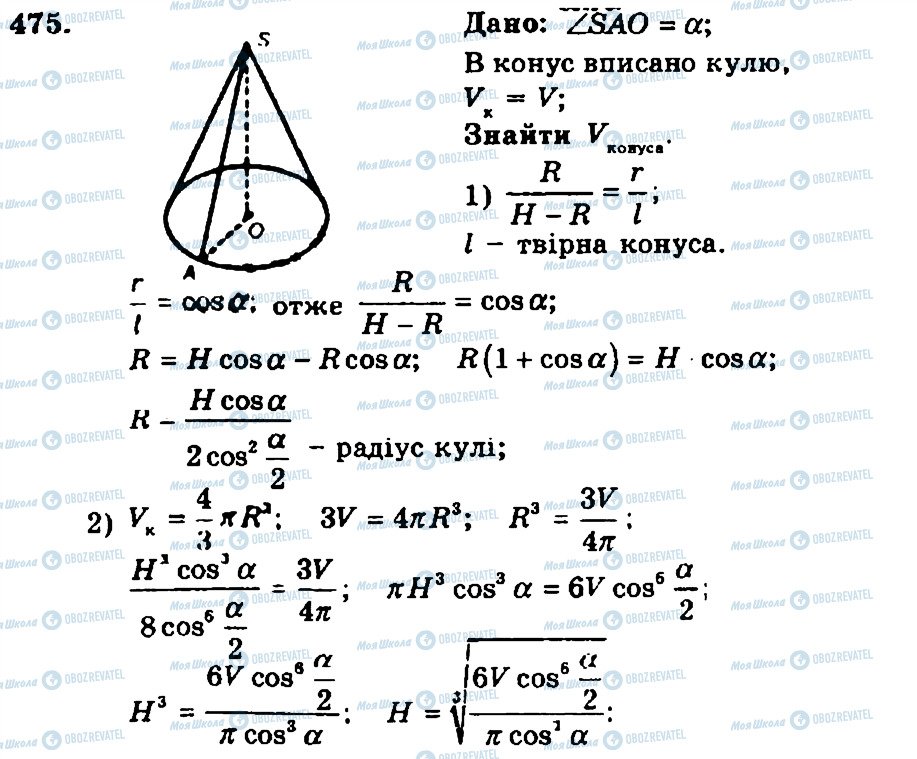 475.
Дано: ∠SAO = α;
В конус вписано кулю,
V_к = V;
Знайти V_конуса.
1) R/(H − R) = r/l;
l – твірна конуса.
S
O
A
r/l = cos α; отже R/(H − R) = cos α;
R = H cos α − R cos α; R(1 + cos α) = H · cos α;
R − (H cos α)/(2 cos² α/2) – радіус кулі;
2) V_к = 4/3 πR³; 3V = 4πR³; R³ = 3V/4π;
(H³ cos³ α)/(8 cos⁶ α/2) = 3V/4π; πH³ cos³ α = 6V cos⁶ α/2;
H³ = (6V cos⁶ α/2)/(π cos³ α); H = ∛((6V cos⁶ α/2)/(π cos³ α));
Моя Школа OBOZREVATEL